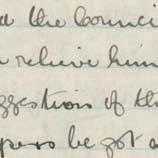 the Counci
relieve him
ggestion of th
be got a